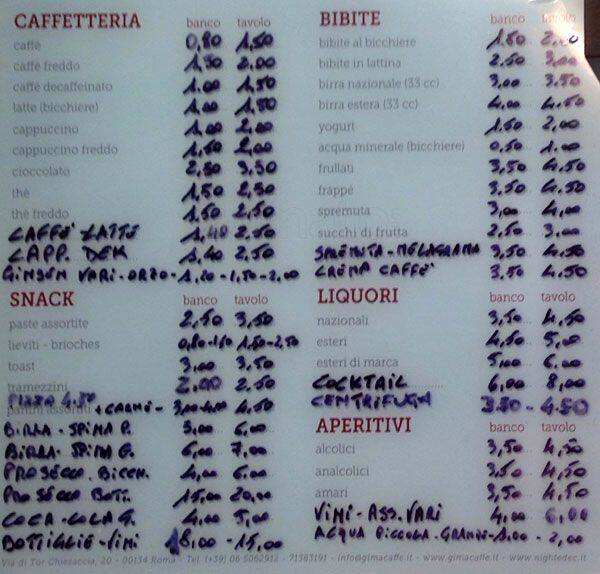 CAFFETTERIA banco tavolo
caffè 0,80 1,50
caffè freddo 1,50 2,00
caffè decaffeinato 1.00 1,50
latte (bicchiere) 1,00 1,50
cappuccino 1,00 2,00
cappuccino freddo 1,50 2,00
cioccolato 2,50 3,50
thè 1,50 2,50
thè freddo 1,50 2,50
CAFFE' LATTE 1,40 2,50
CAPP. DEK 1,40 2,50
GINSEN VARI-ORZO-1,20-1,50-2,00
SNACK banco tavolo
paste assortite 2,50 3,50
lieviti - brioches 0,80-1,50 1,50-2,50
toast 3,00 3,50
tramezzini 2,00 2,50
PIZZA 4.50
panini assortiti + CARNE- 3,00-4,00 4,50
BIRRA-SPINA P. 5,00 6,00
BIRRA-SPINA G. 6,00 7,00
PROSECCO BICCH. 4,00 6,00
PROSECCO BOTT. 15,00 20,00
COCA-COLA G. 4,00 5,00
BOTTIGLIE-VINI 18,00-15,00
BIBITE banco tavolo
bibite al bicchiere 1.50 2,00
bibite in lattina 2,50 3,00
birra nazionale (33 cc) 3,00 3.50
birra estera (33 cc) 4,00 4,50
yogurt 1,50 2,00
acqua minerale (bicchiere) 0,50 1.00
frullati 3,50 4,50
frappé 3,50 4,50
spremuta 3,00 4,00
succhi di frutta 2,50 3,00
SPREMUTA-MELAGRANA 3,50 4,50
CREMA CAFFE' 3,50 4,50
LIQUORI banco tavolo
nazionali 3,50 4,50
esteri 4,50 5,00
esteri di marca 5,00 6,00
COCKTAIL 6,00 8,00
CENTRIFUGA 3.50 - 4.50
APERITIVI banco tavolo
alcolici 3,50 4,50
analcolici 3,50 4,50
amari 3,50 4,50
VINI-ASS.VARI 4,00 6,00
ACQUA PICCOLA-GRANDE-1,00-2,00
Via di Tor Chiesaccia, 20 - 00134 Roma - Tel. (+39) 06 5062912 - 71383191 - info@gimacaffe.it - www.gimacaffe.it - www.nightedec.it